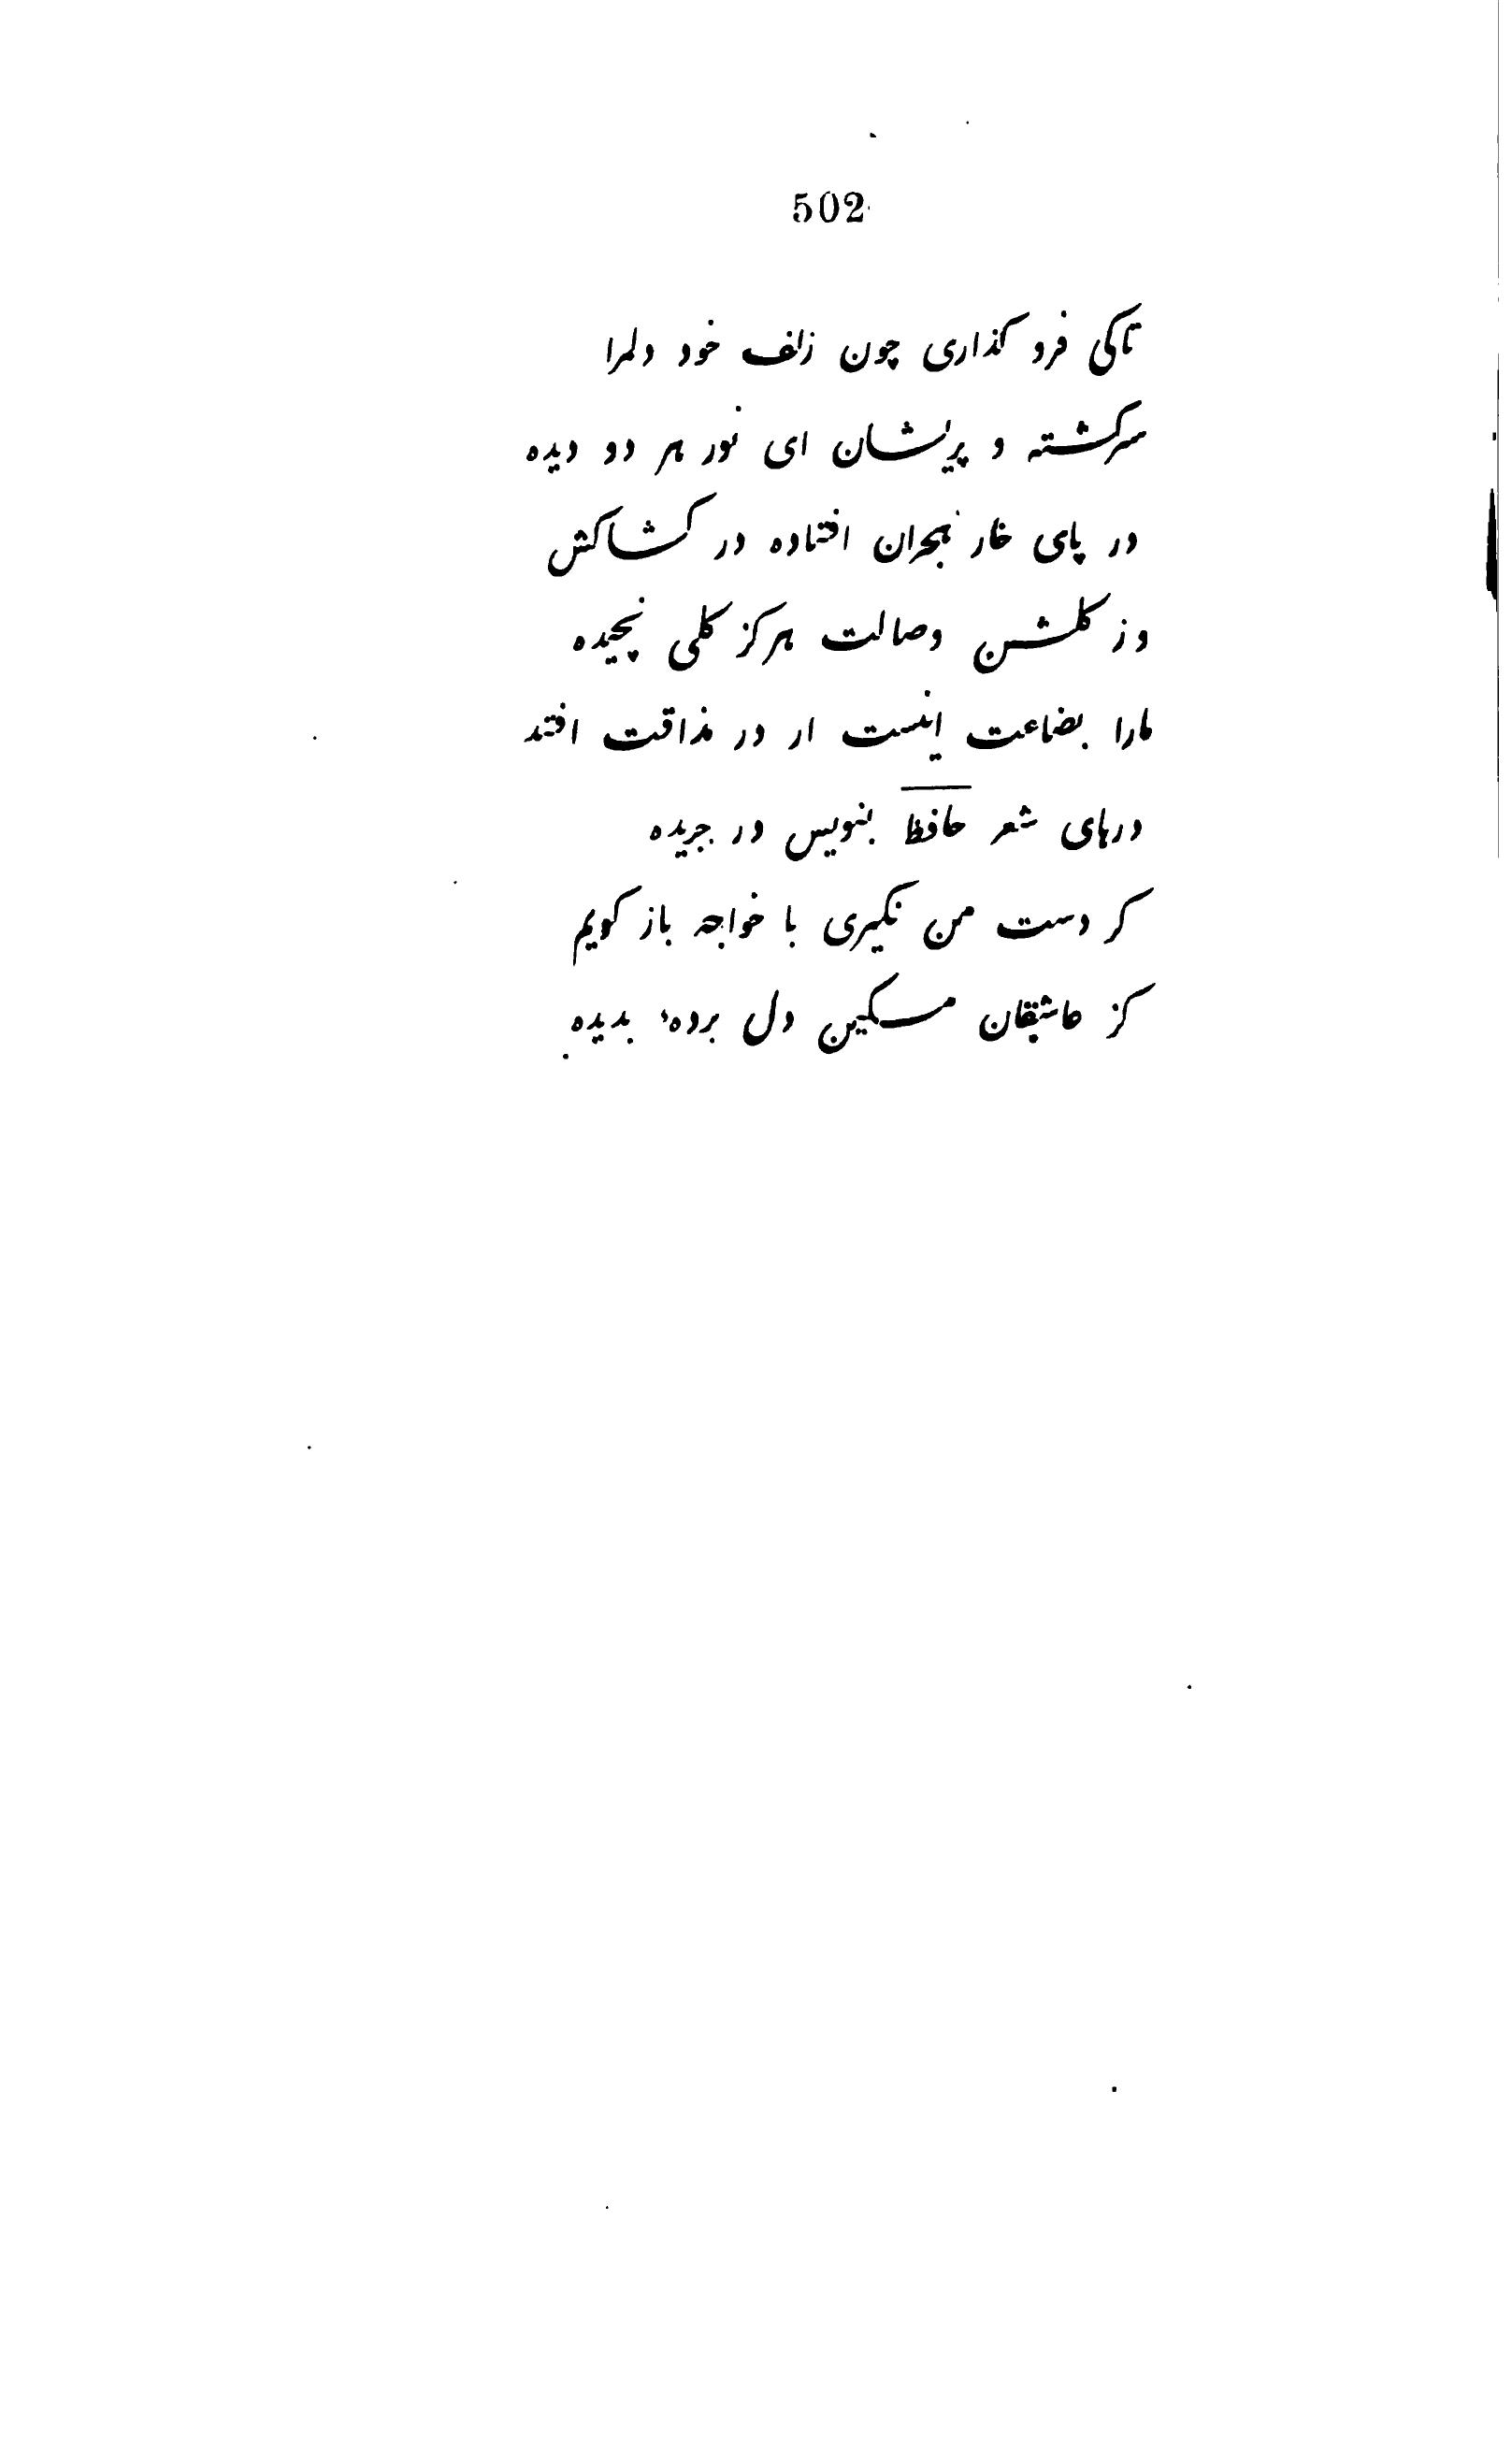 502
تاکی فرو کذاری چون زلف خود دلمرا
سرکشته و پریشان ای نور هر دو دیده
در پای خار هجران افتاده در کشاکش
وز کلشن وصالت هرکز کلی نچیده
مارا بضاعت اینست ار در مذاقت افتد
درهای شعر حافظ بنویس در جریده
کر دست من نکیری با خواجه باز کویم
کز عاشقان مسکین دل بردهٔ بدیده